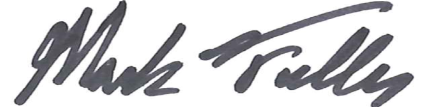 Mark Tulley